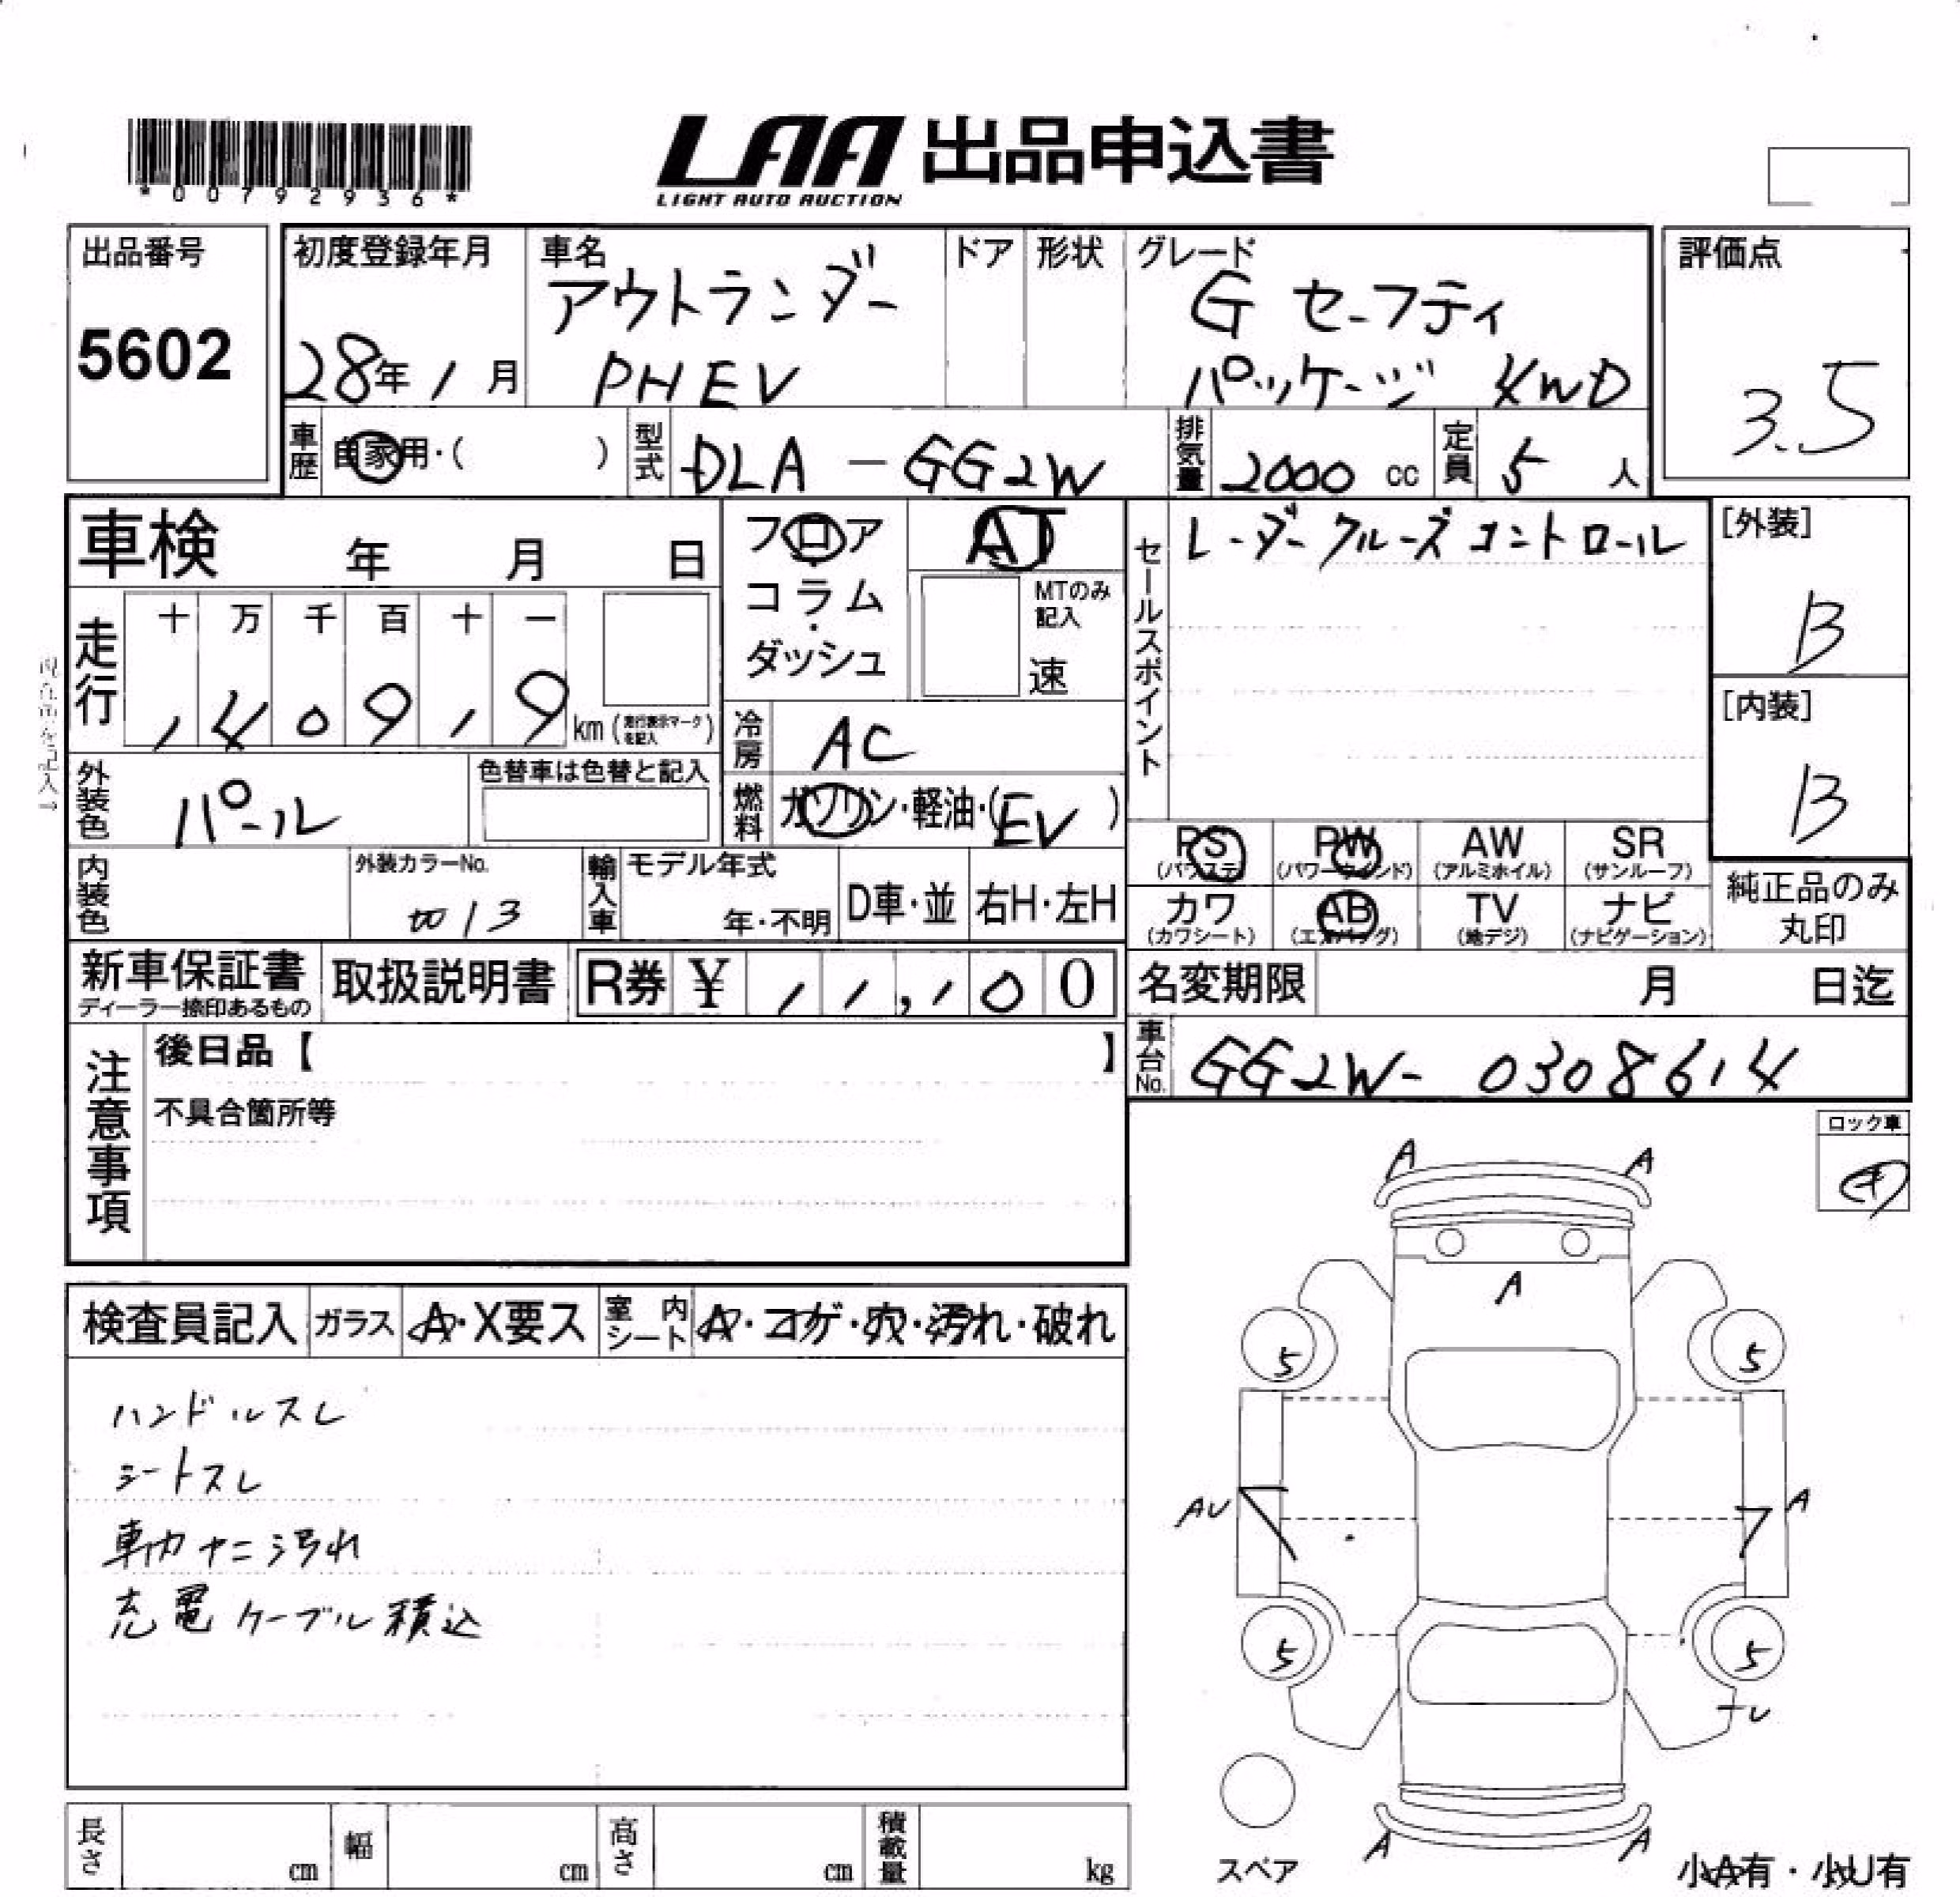 *00792936*
LAA 出品申込書
LIGHT AUTO AUCTION
出品番号
5602
初度登録年月
28年 1月
車名
アウトランダー
PHEV
ドア
形状
グレード
G セーフティ
パッケージ 4WD
評価点
3.5
車歴
自家用・( )
型式
DLA - GG2W
排気量
2000 cc
定員
5 人
車検 年 月 日
フロア
コラム
・
ダッシュ
AT
MTのみ
記入
速
セールスポイント
レーダークルーズコントロール
[外装]
B
[内装]
B
走行
十 万 千 百 十 一
1 4 0 9 1 9 km (走行表示マークを記入)
冷房
AC
外装色
パール
色替車は色替と記入
燃料
ガソリン・軽油・(EV)
PS (パワステ)
PW (パワーウインド)
AW (アルミホイル)
SR (サンルーフ)
カワ (カワシート)
AB (エアバッグ)
TV (地デジ)
ナビ (ナビゲーション)
純正品のみ
丸印
内装色
外装カラーNo.
W13
輸入車
モデル年式
年・不明
D車・並
右H・左H
新車保証書
ディーラー捺印あるもの
取扱説明書
R券 ¥ 11,100
名変期限 月 日迄
車台No.
GG2W- 0308614
注意事項
後日品【 】
不具合箇所等
ロック車
キ
検査員記入
ガラス
A・X要ス
室内シート
A・コゲ・穴・汚れ・破れ
ハンドルスレ
シートスレ
車内ヤニ汚れ
充電ケーブル積込
A
A
A
5
5
AU
A
5
5
U
A
A
スペア
小A有・小U有
長さ cm
幅 cm
高さ cm
積載量 kg